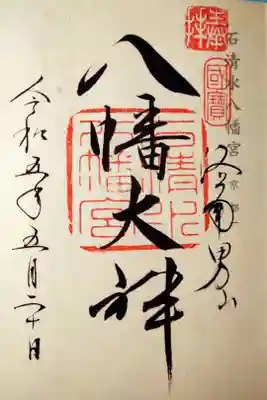 奉拝
國寶
石清水八幡宮
京都
男山
八幡大神
石清水八幡宮
令和五年五月二十日